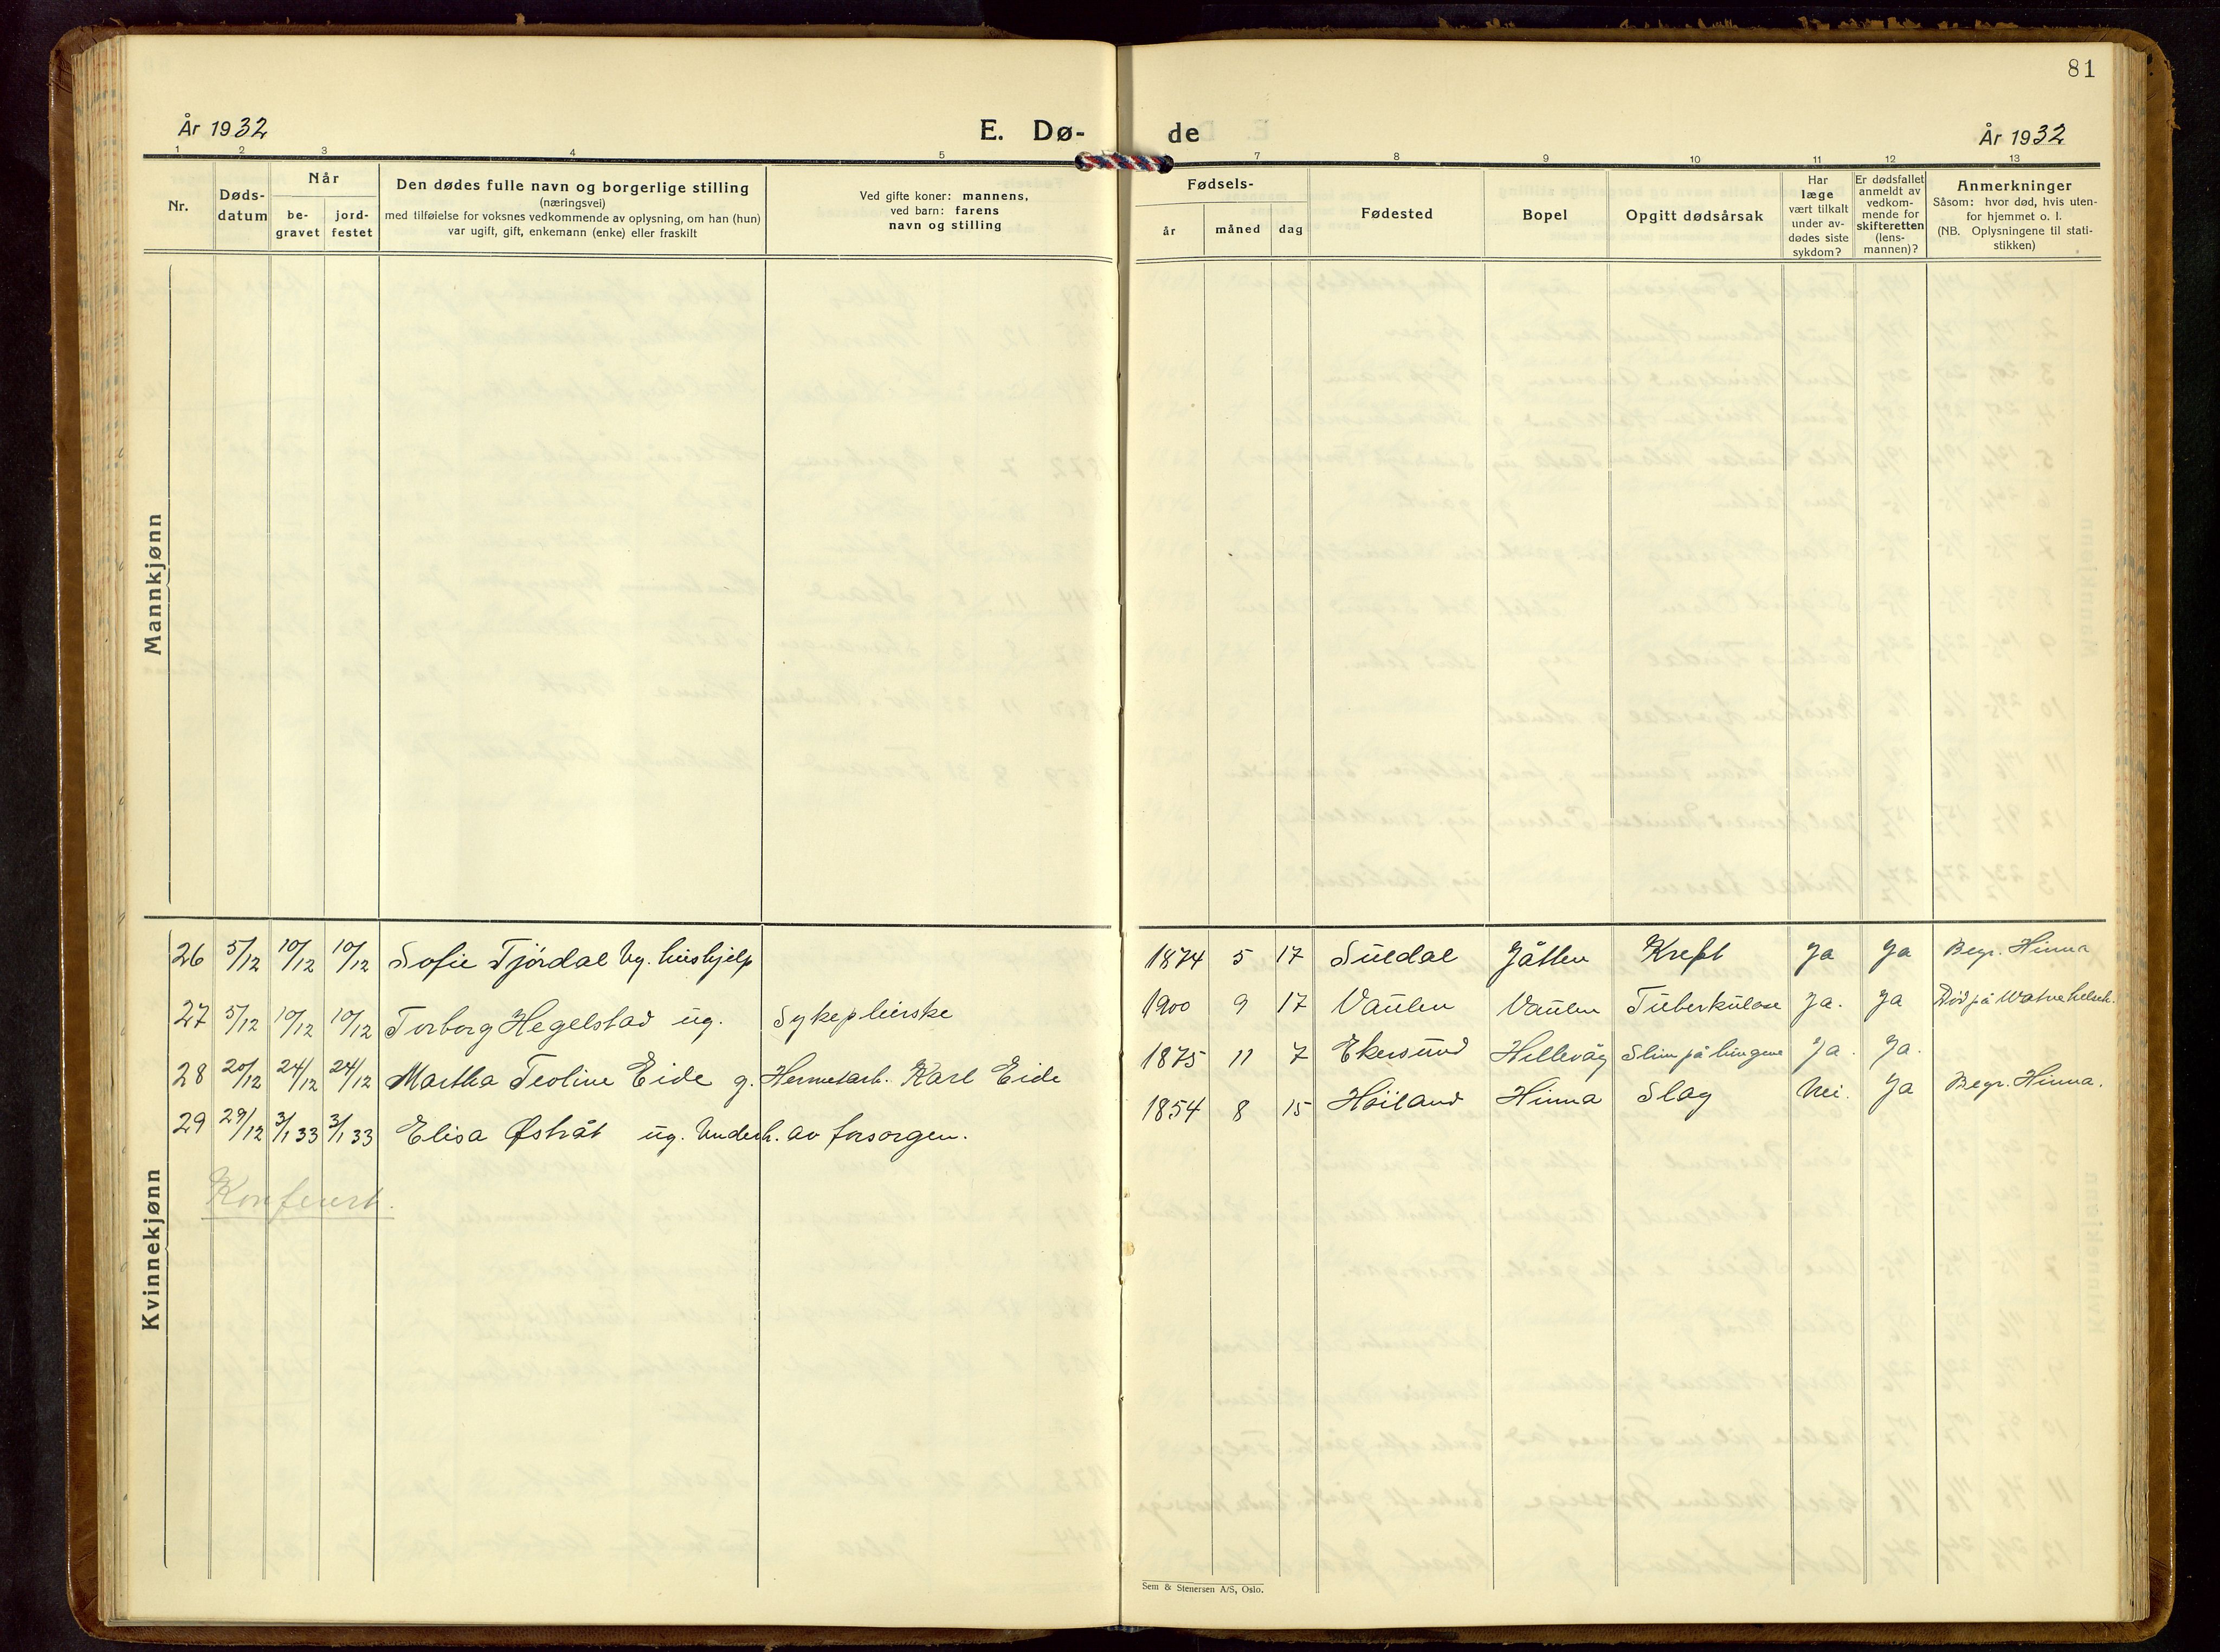 81
År 1932
E. Dø-
de
År 1932
1 2 3 4 5
7 8 9 10 11 12 13
Nr.
Døds-
datum
Når
be-
gravet
jord-
festet
Den dødes fulle navn og borgerlige stilling
(næringsvei)
med tilføielse for voksnes vedkommende av oplysning, om han (hun)
var ugift, gift, enkemann (enke) eller fraskilt
Ved gifte koner: mannens,
ved barn: farens
navn og stilling
Fødsels-
år
måned
dag
Fødested
Bopel
Opgitt dødsårsak
Har
læge
vært tilkalt
under av-
dødes siste
sykdom?
Er dødsfallet
anmeldt av
vedkom-
mende for
skifteretten
(lens-
mannen)?
Anmerkninger
Såsom: hvor død, hvis uten-
for hjemmet o. l.
(NB. Oplysningene til stati-
stikken)
Mannkjønn
Kvinnekjønn
26 5/12 10/12 10/12 Sofie Tjørdal Ug. hushjelp 1874 5 17 Suldal Jåtten Kreft Ja Ja Begr. Hinna
27 5/12 10/12 10/12 Torborg Hegelstad ug. Sykepleierske 1900 9 17 Vaulen Vaulen Tuberkulose Ja. Ja Død på Watne
28 20/12 24/12 24/12 Martha Teoline Eide g. Hermetarb. Karl Eide 1875 11 7 Ekersund Hillevåg Slim på lungene Ja. Ja.
29 29/12 3/1 33 3/1 33 Elisa Østråt ug. Underh. av forsorgen. 1854 8 15 Høiland Hinna Slag Nei. Ja Begr. Hinna.
Konferert.
Sem & Stenersen A/S, Oslo.